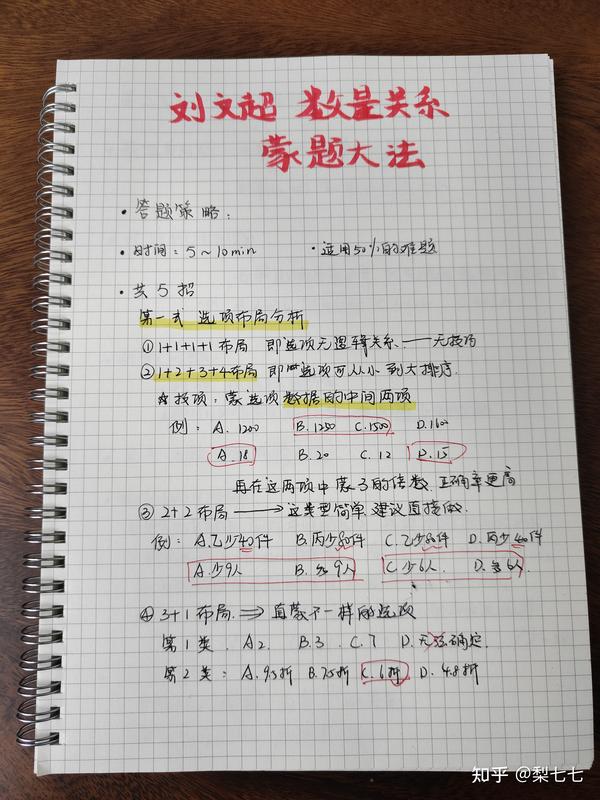 刘文超 数量关系
蒙题大法
· 答题策略：
· 时间：5～10min · 适用50%的难题
· 共5招
第一式 选项布局分析
①1+1+1+1布局 即选项无逻辑关系——无技巧
②1+2+3+4布局 即选项可从小到大排序.
☆技项：蒙选项数据的中间两项
例： A. 1200 B. 1250 C. 1500 D. 1600
A. 18 B. 20 C. 12 D. 15
再在这两项中蒙3的倍数，正确率更高
③ 2+2布局 ——→ 这类型简单，建议直接做.
例： A.乙少40件 B.丙少80件 C.乙少80件 D.丙少40件
A.少9人 B.多9人 C.少6人 D.多6人
④ 3+1布局. ⇒ 直蒙不一样的选项
第1类. A2. B.3 . C.7 D.无法确定.
第2类： A.9.5折 B.7.5折 C.6折 D. 4.8折
知乎 @梨七七